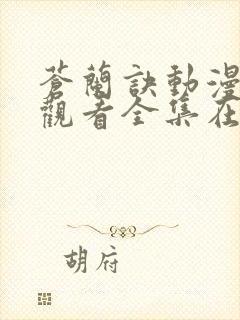 蒼蘭訣動漫
觀看全集在
胡府